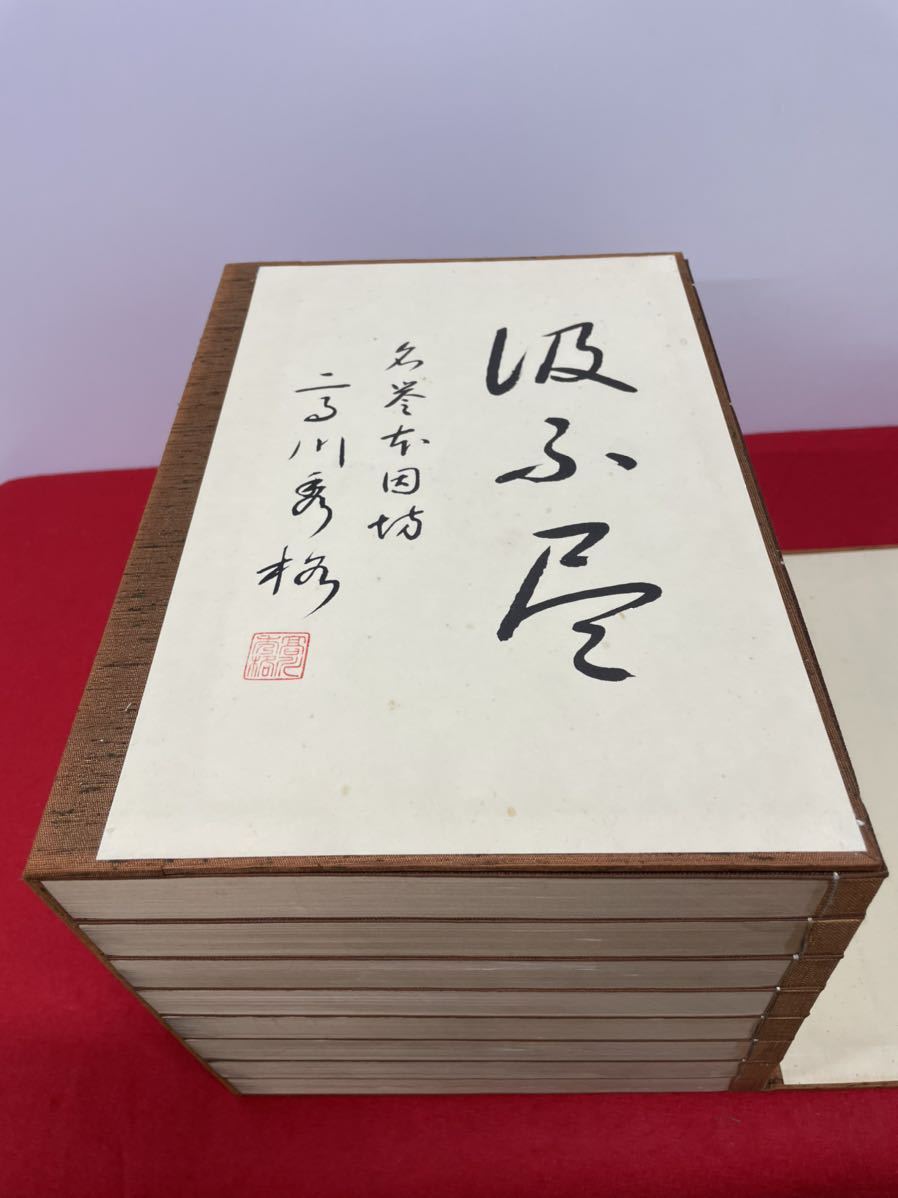 汲不尽
名誉本因坊
高川秀格